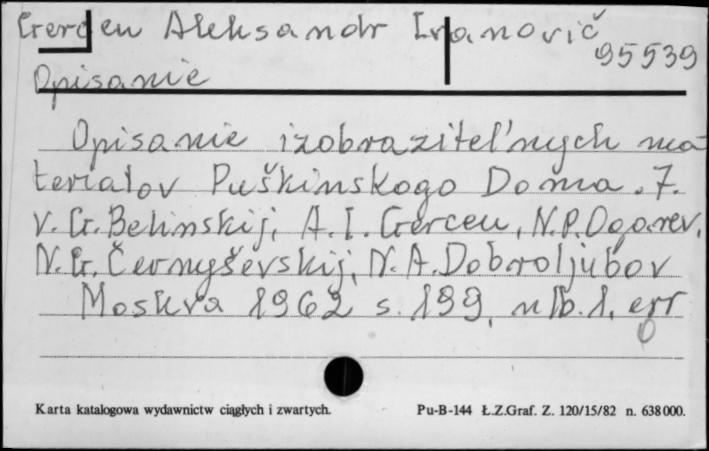 Gercen Aleksandr Ivanovič
95539
Opisanie
Opisanie izobrazitel'nych ma-
terialov Puškinskogo Doma. 7.
V. G. Belinskij, A. I. Gercen, N. P. Ogarev,
N. G. Černyševskij, N. A. Dobroljubov
Moskva 1962 s. 199, nlb. 1, err
Karta katalogowa wydawnictw ciągłych i zwartych.
Pu-B-144 Ł.Z.Graf. Z. 120/15/82 n. 638000.